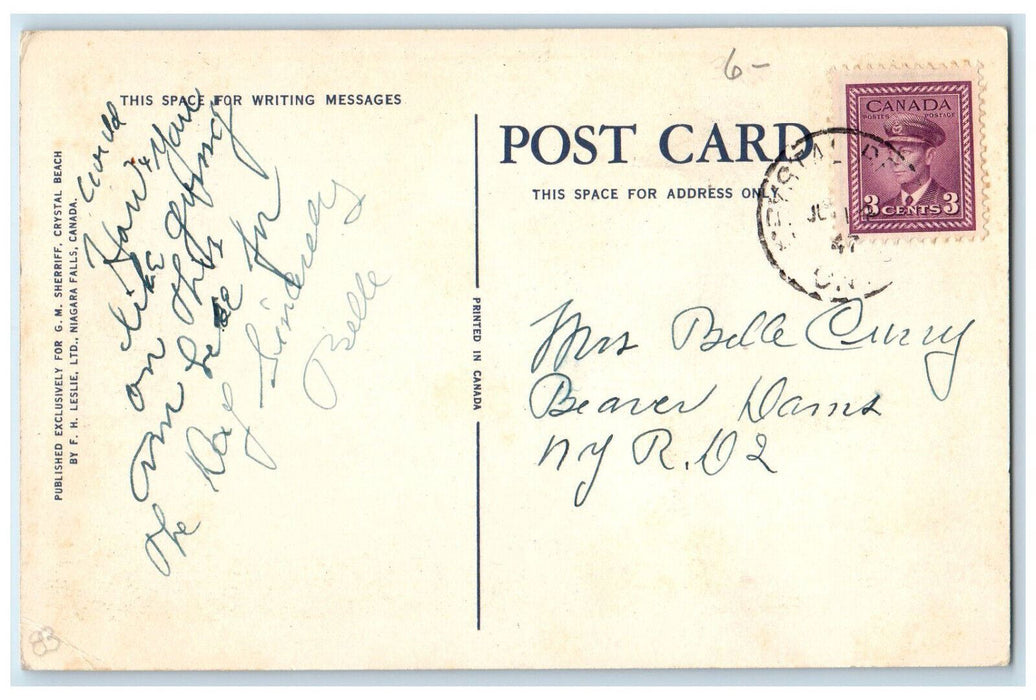 THIS SPACE FOR WRITING MESSAGES
POST CARD
THIS SPACE FOR ADDRESS ONLY
6-
CANADA
POSTES POSTAGE
3 CENTS 3
CRYSTAL
47
ONT
PUBLISHED EXCLUSIVELY FOR G. M. SHERRIFF, CRYSTAL BEACH
BY F. H. LESLIE, LTD., NIAGARA FALLS, CANADA.
PRINTED IN CANADA
Could
you
on like this
be here for
the Day
Sincerely
Belle
Mrs Belle Curry
Beaver Dams
NY R.D2
83